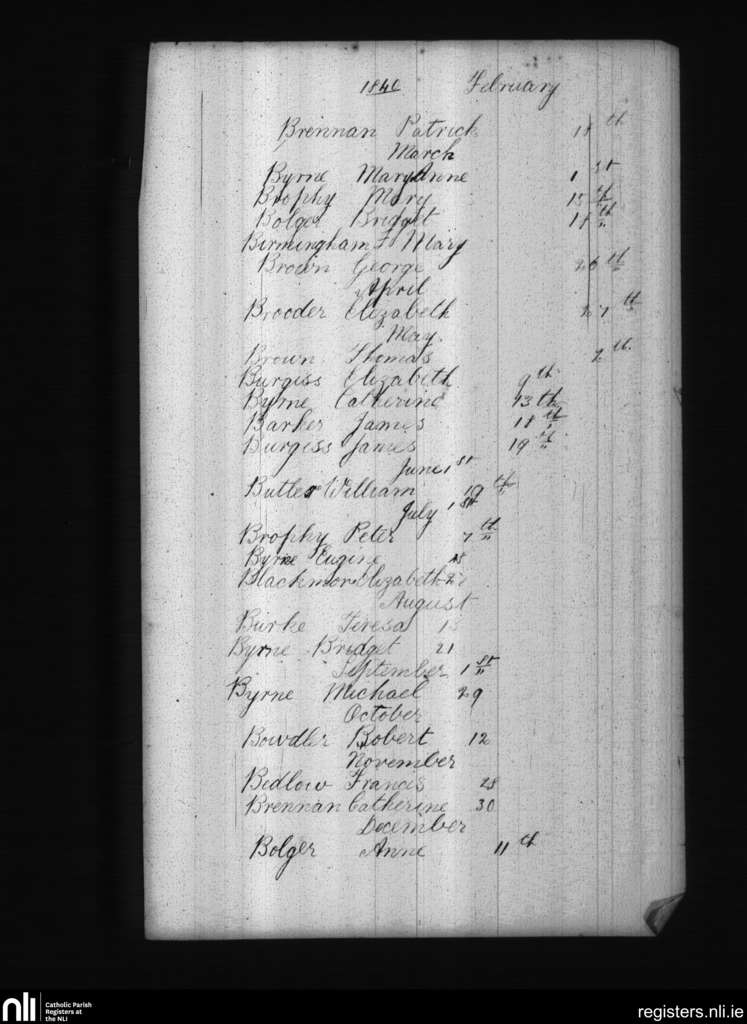 1840 February
Brennan Patrick 18th
March
Byrne Mary Anne 1st
Brophy Mary 15th
Bolger Bridget 18th
Birmingham F Mary
Brown George 26th
April
Brooder Elizabeth 27th
May
Brown Thomas 2th
Burgiss Elizabeth 9th
Byrne Catherine 13th
Barker James 18th
Burgiss James 19th
June 1st
Butler William 19th
July 1st
Brophy Peter 7th
Byrne Eugine 18
Blackmore Elizabeth
August
Burke Teresa 15
Byrne Bridget 21
September 1st
Byrne Michael 29
October
Bowdler Robert 12
November
Bedlow Francis 28
Brennan Catherine 30
December
Bolger Anne 11th
nli Catholic Parish
Registers at
the NLI
registers.nli.ie